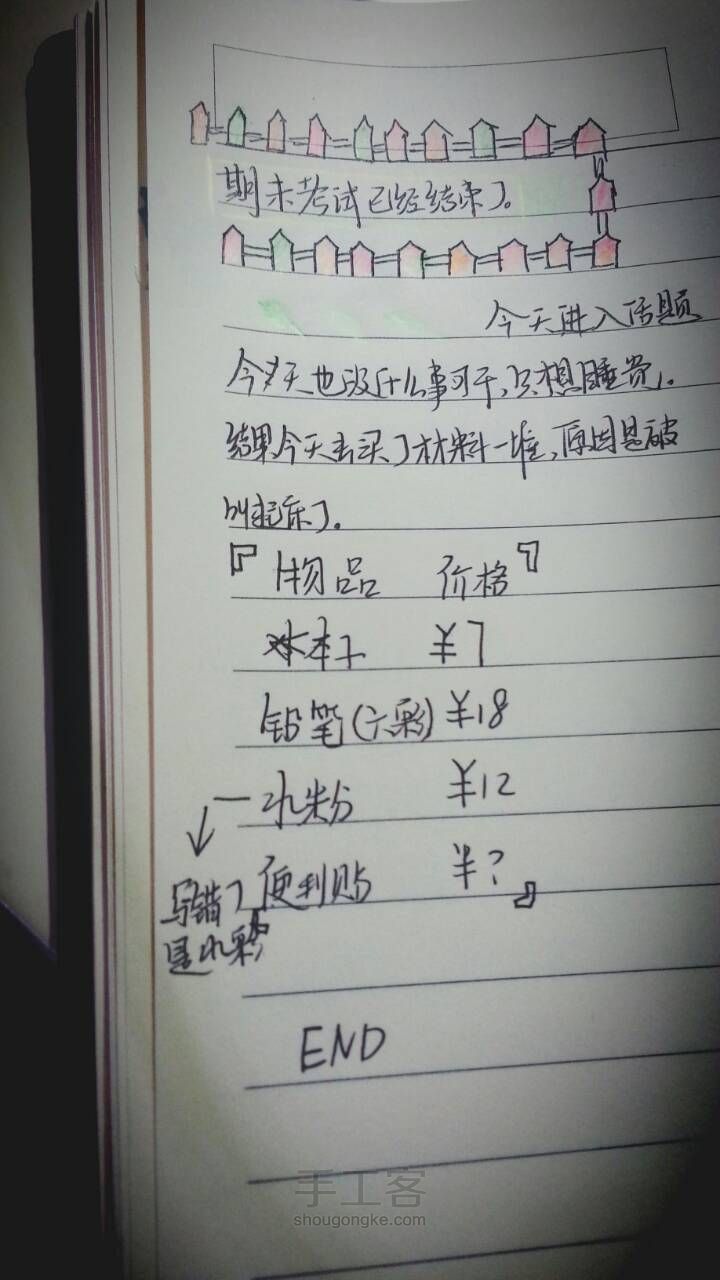 期末考试已经结束了。
今天进入话题
今天也没什么事可干,只想睡觉。
结果今天去买了材料一堆,原因是被
叫起床了。
『物品 价格』
本子 ¥7
铅笔(六彩) ¥18
水粉 ¥12
便利贴 ¥?』
写错了
是水彩
END
手工客
shougongke.com